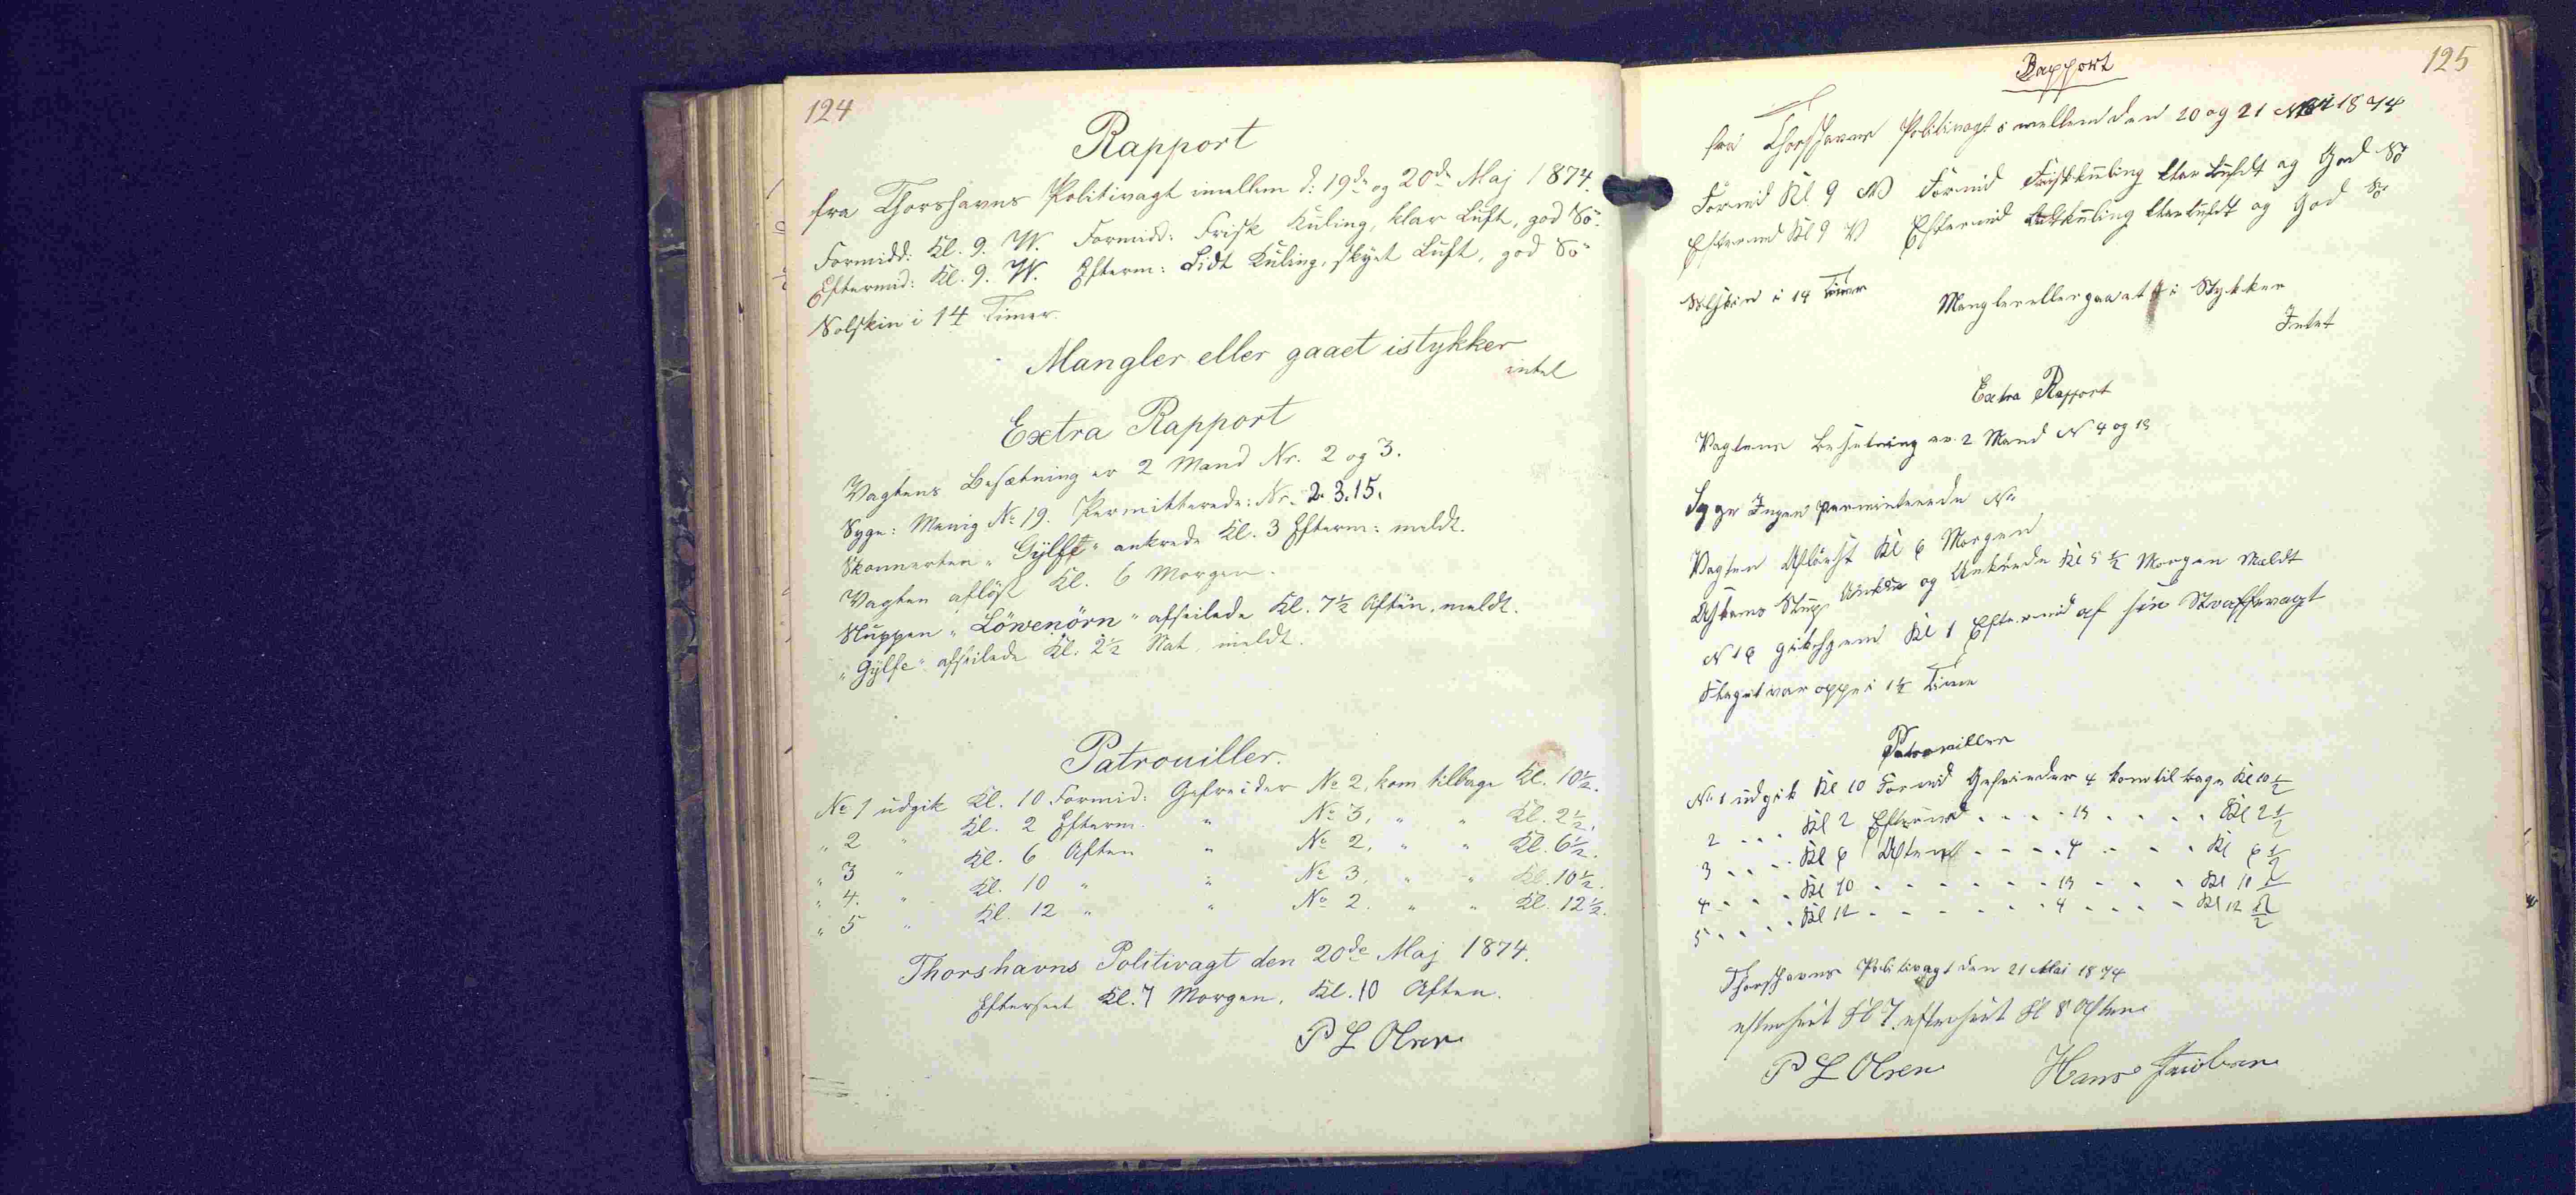 124
Rapport
fra Thorshavns Politivagt imellem d: 19de og 20de Maj 1874.
Formidd: Kl. 9. W. Formidd: Frisk Kuling, klar Luft, god Sö.
Eftermid: Kl. 9. W. Efterm: Lidt Kuling, skyet Luft, god Sö
Solskin i 14 Timer.
Mangler eller gaaet istykker
intet
Extra Rapport
Vagtens Besætning er 2 Mand Nr. 2 og 3.
Syge: Menig No 19. Permitterede: Nr. 2. 3. 15.
Skonnerten "Gylfe" ankrede Kl. 3 Efterm: meldt.
Vagten aflöst Kl. 6 Morgen.
Sluppen "Löwenörn" afseilede Kl. 7½ Aften, meldt.
"Gylfe" afseilede Kl. 2½ Nat, meldt.
Patrouiller.
No 1 udgik Kl. 10 Formid: Gefreider No 2, kom tilbage Kl. 10½.
" 2 " Kl. 2 Efterm. " No 3, " " Kl. 2½.
" 3 " Kl. 6 Aften " No 2, " " Kl. 6½.
" 4. " Kl. 10 " " No 3, " " Kl. 10½.
" 5 " Kl. 12 " " No 2. " " Kl. 12½.
Thorshavns Politivagt den 20de Maj 1874.
Efterseet Kl. 7 Morgen. Kl. 10 Aften.
P L Olsen
125
Rapport
fra Thorshavns Politivagt i mellem den 20 og 21 Mai 1874
Formid Kl 9 W Formid Friskkuling klar Luft og God Sö
Eftermid Kl 9 V Eftermid Lidtkuling klar luft og God Sö
Solskin i 14 Timer
Mangler eller gaaat i Stykker
Intet
Extra Rapport
Vagtens Besetning er 2 Mand N 4 og 13
Syge Ingen No
Vagten Aflöest Kl 6 Morgen
Slup og Ankrede Kl 5 ½ Morgen Meldt
N 16 gik Kl 1 Eftermid af sin Straffevagt
Flaget var oppe i 1½ Time
Patrouiller
No 1 udgik Kl 10 Formid Gefreider 4 kom tilbage Kl 10 ½
2 . . . Kl 2 Eftermid . . . . 13 . . . . Kl 2 ½
3 . . . . Kl 6 Aften . . . . 4 . . . . Kl 6 ½
4 . . . Kl 10 . . . . . . 13 . . . Kl 10 ½
5 . . . . Kl 12 . . . . . . 4 . . . . Kl 12 ½
Thorshavns Politivagt den 21 Mai 1874
efterseet Kl 7. efterseet Kl 8 Aften
P L Olsen Hans Jacobsen